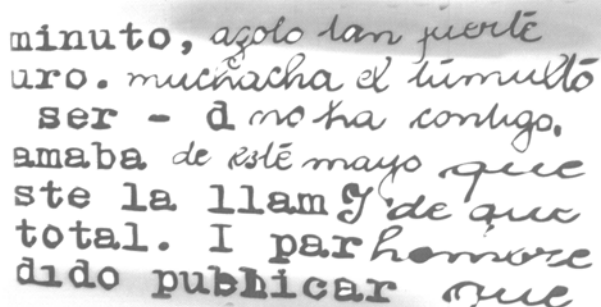 minuto, azoto tan fuerte
uro. muchacha el túmulto
ser - d no ha contigo.
amaba de este mayo que
ste la llam y de que
total. I par hombre
dido publicar que